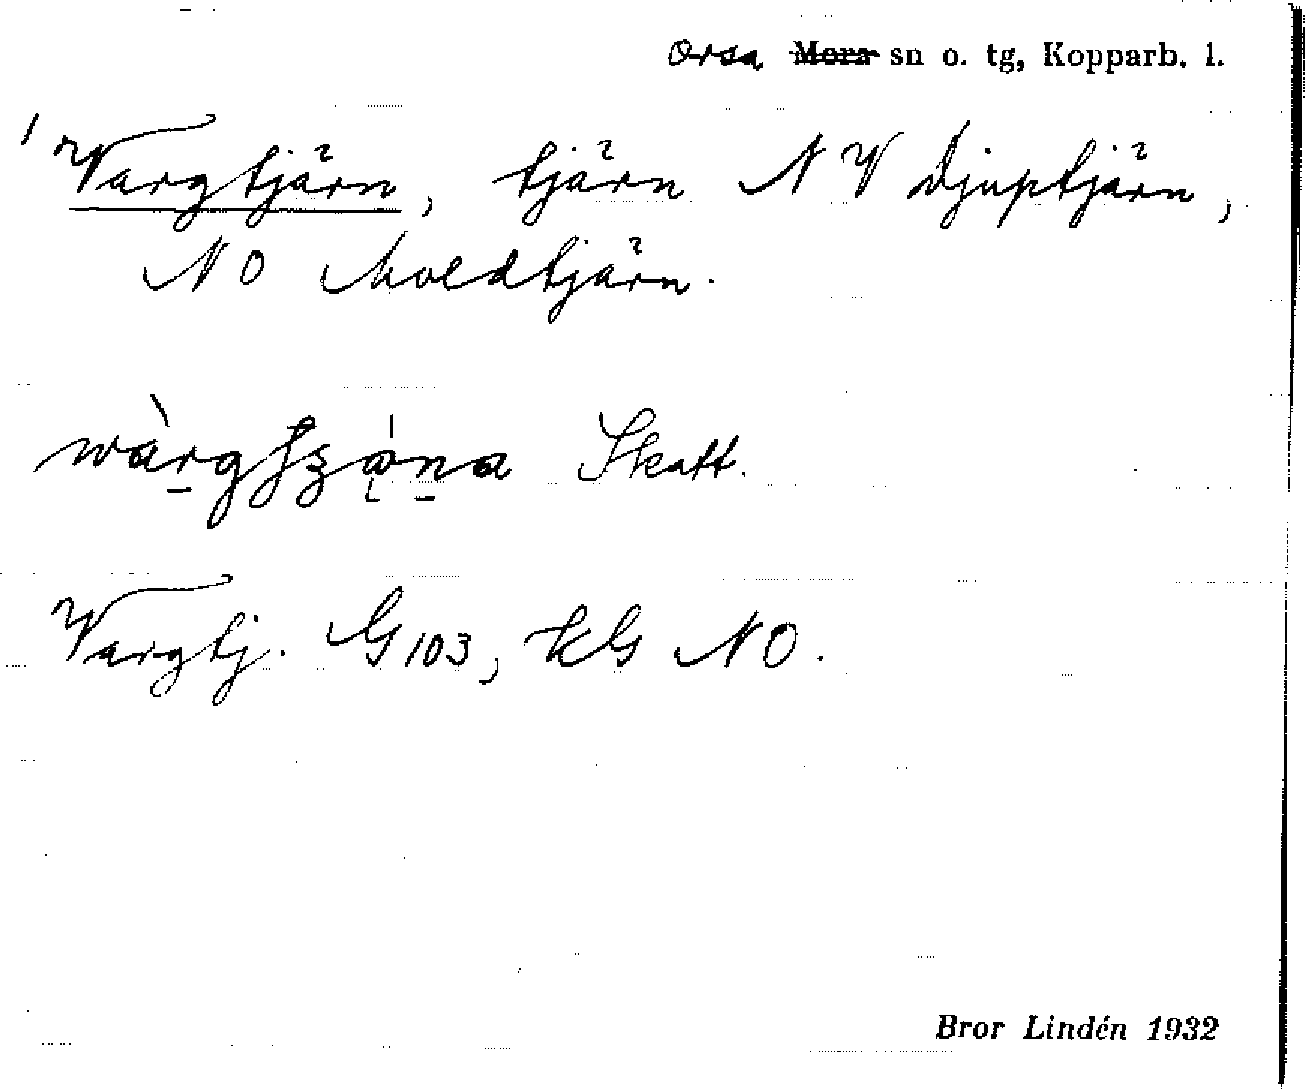 Orsa Mora sn o. tg, Kopparb. l.
Vargtjärn, tjärn NV Djuptjärn,
NO Moldtjärn.
Skatt.
Vargtj. G103, kG NO.
Bror Lindén 1932